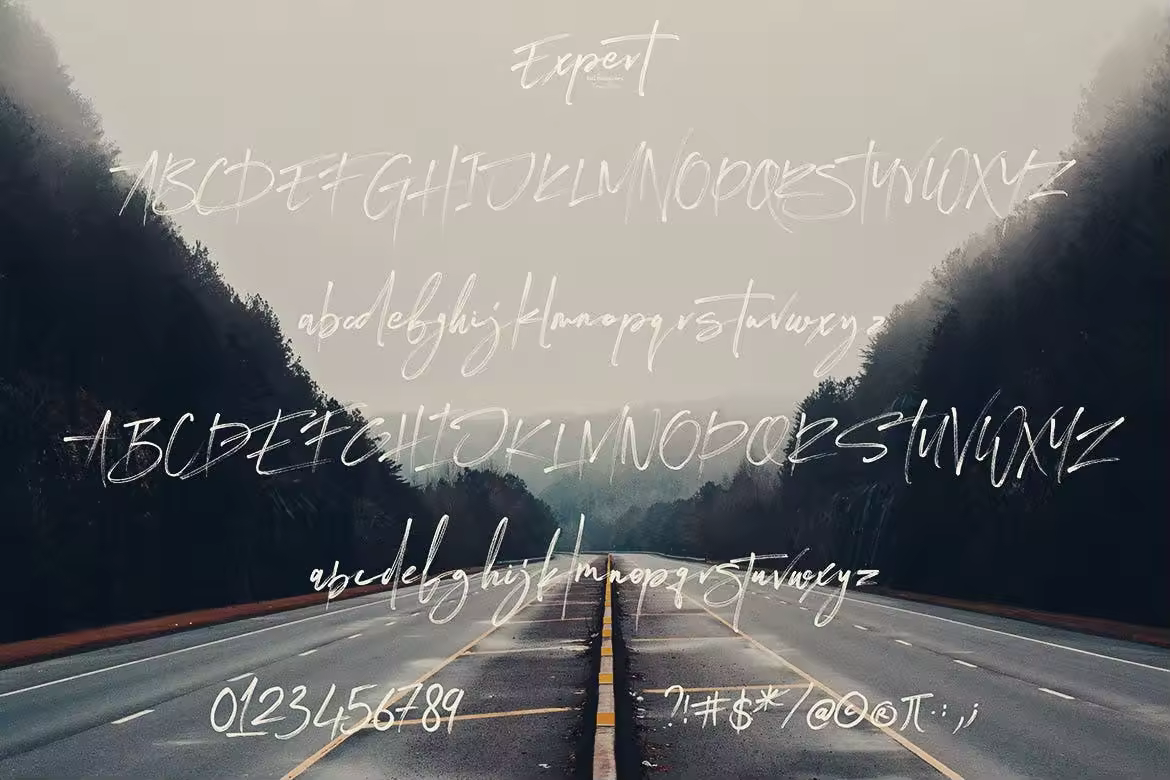 Expert
ABCDEFGHIJKLMNOPQRSTUVWXYZ
abcdefghijklmnopqrstuvwxyz
ABCDEFGHIJKLMNOPQRSTUVWXYZ
abcdefghijklmnopqrstuvwxyz
0123456789 ?!#$*/@©®π.:,;